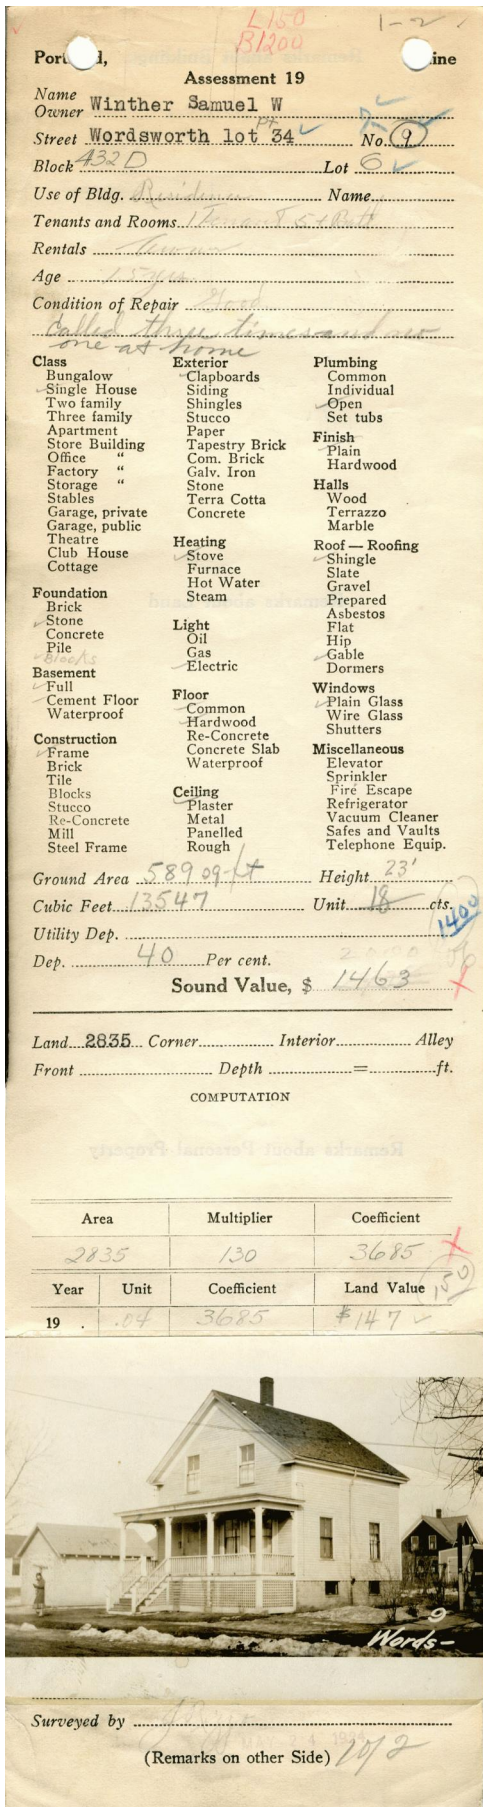 L150
B1200
1-2
Port d, ine
Assessment 19
Name
Owner Winther Samuel W
Street Wordsworth lot pt 34 No. 9
Block 432 D Lot 6
Use of Bldg. Residence Name
Tenants and Rooms 1 Tenant 5 +
Rentals
Age 15 yrs
Condition of Repair Good
Called three times and no
one at home
Class
Bungalow
Single House
Two family
Three family
Apartment
Store Building
Office "
Factory "
Storage "
Stables
Garage, private
Garage, public
Theatre
Club House
Cottage
Foundation
Brick
Stone
Concrete
Pile
Blocks
Basement
Full
Cement Floor
Waterproof
Construction
Frame
Brick
Tile
Blocks
Stucco
Re-Concrete
Mill
Steel Frame
Exterior
Clapboards
Siding
Shingles
Stucco
Paper
Tapestry Brick
Com. Brick
Galv. Iron
Stone
Terra Cotta
Concrete
Heating
Stove
Furnace
Hot Water
Steam
Light
Oil
Gas
Electric
Floor
Common
Hardwood
Re-Concrete
Concrete Slab
Waterproof
Ceiling
Plaster
Metal
Panelled
Rough
Plumbing
Common
Individual
Open
Set tubs
Finish
Plain
Hardwood
Halls
Wood
Terrazzo
Marble
Roof — Roofing
Shingle
Slate
Gravel
Prepared
Asbestos
Flat
Hip
Gable
Dormers
Windows
Plain Glass
Wire Glass
Shutters
Miscellaneous
Elevator
Sprinkler
Fire Escape
Refrigerator
Vacuum Cleaner
Safes and Vaults
Telephone Equip.
Ground Area 589 sq-ft Height 23'
Cubic Feet 13547 Unit 18 cts.
1400
Utility Dep.
Dep. 40 Per cent.
Sound Value, $ 1463
Land 2835 Corner Interior Alley
Front Depth = ft.
COMPUTATION
Area Multiplier Coefficient
2835 130 3685
150
Year Unit Coefficient Land Value
19 . .04 3685 $147
9
Words-
Surveyed by
(Remarks on other Side) 10/2